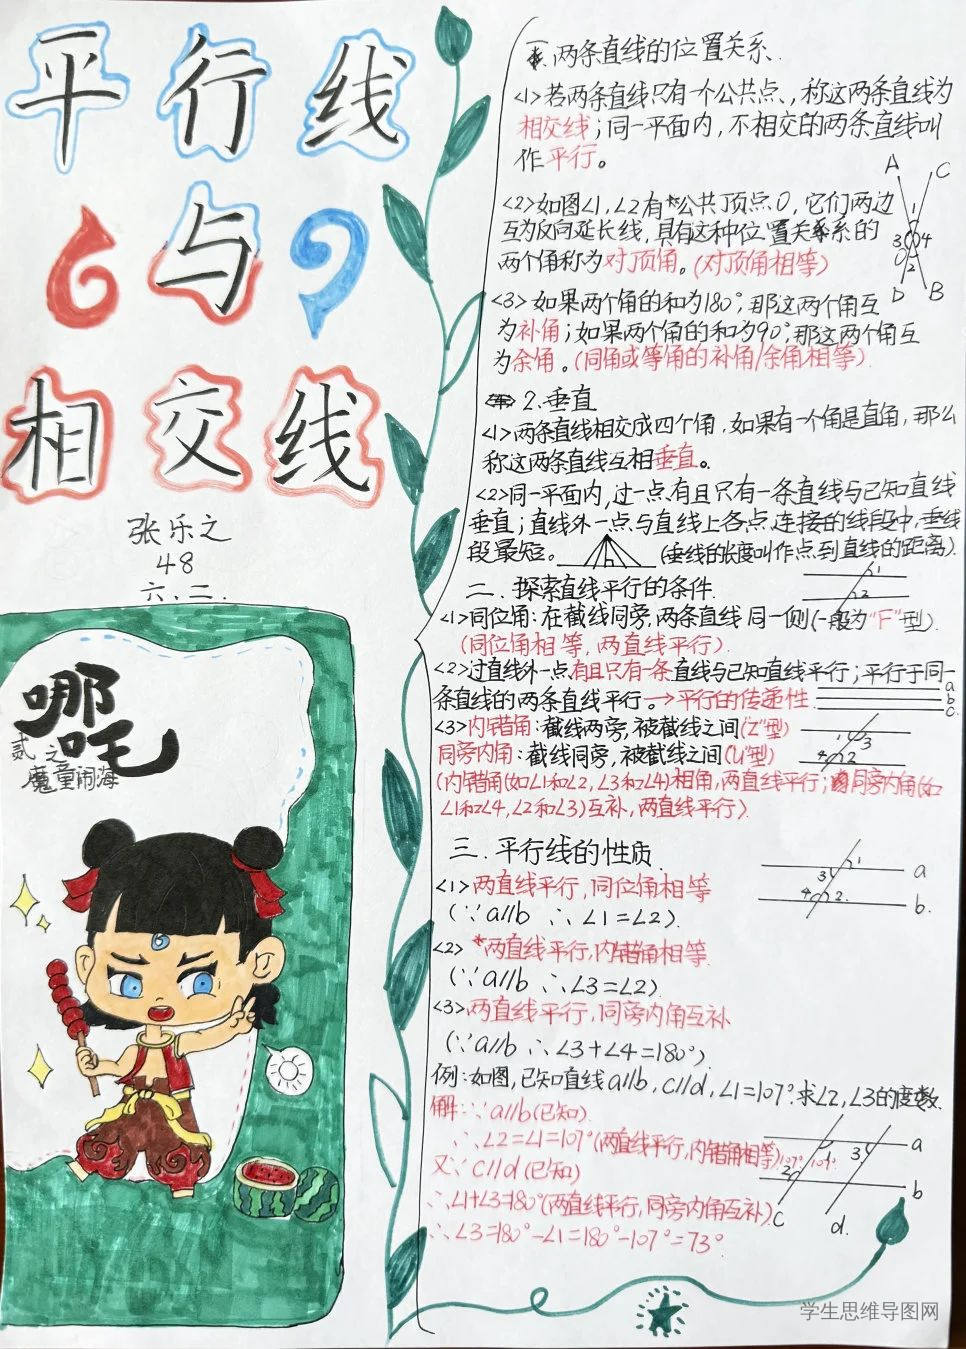 平行线
与
相交线
张乐之
48
六、二.
哪吒
贰 之
魔童闹海
一、两条直线的位置关系.
<1>若两条直线只有一个公共点、,称这两条直线为
相交线;同一平面内,不相交的两条直线叫
作平行。
A C
1
3 4
O
2
D B
<2>如图∠1,∠2有公共顶点O,它们两边
互为反向延长线,具有这种位置关系的
两个角称为对顶角。(对顶角相等)
<3>如果两个角的和为180°,那这两个角互
为补角;如果两个角的和为90°那这两个角互
为余角。(同角或等角的补角/余角相等)
2.垂直
<1>两条直线相交成四个角,如果有一个角是直角,那么
称这两条直线互相垂直。
<2>同一平面内,过一点有且只有一条直线与已知直线
垂直;直线外一点与直线上各点连接的线段中,垂线
段最短。 (垂线的长度叫作点到直线的距离).
二.探索直线平行的条件.
1
2
<1>同位角:在截线同旁,两条直线同一侧(一般为“F”型).
(同位角相等,两直线平行).
<2>过直线外一点有且只有一条直线与已知直线平行;平行于同一
条直线的两条直线平行。→平行的传递性.
a
b
c.
<3>内错角:截线两旁,被截线之间(“Z”型)
同旁内角:截线同旁,被截线之间(“U”型)
1 3
4 2
(内错角(如∠1和∠2,∠3和∠4)相角,两直线平行;同旁内角(如
∠1和∠4,∠2和∠3)互补,两直线平行).
三.平行线的性质.
<1>两直线平行,同位角相等
(∵a//b ∴∠1=∠2).
1
3 a
4 2. b.
<2>两直线平行,内错角相等.
(∵a//b ∴∠3=∠2).
<3>两直线平行,同旁内角互补
(∵a//b ∴∠3+∠4=180°)
例:如图,已知直线a//b,c//d,∠1=107°.求∠2,∠3的度数.
解:∵a//b(已知).
∴∠2=∠1=107°(两直线平行,内错角相等)
又∵c//d(已知)
∴∠1+∠3=180°(两直线平行,同旁内角互补).
∴∠3=180°-∠1=180°-107°=73°.
a
1 3
107° 107°
2 b
c d.
学生思维导图网